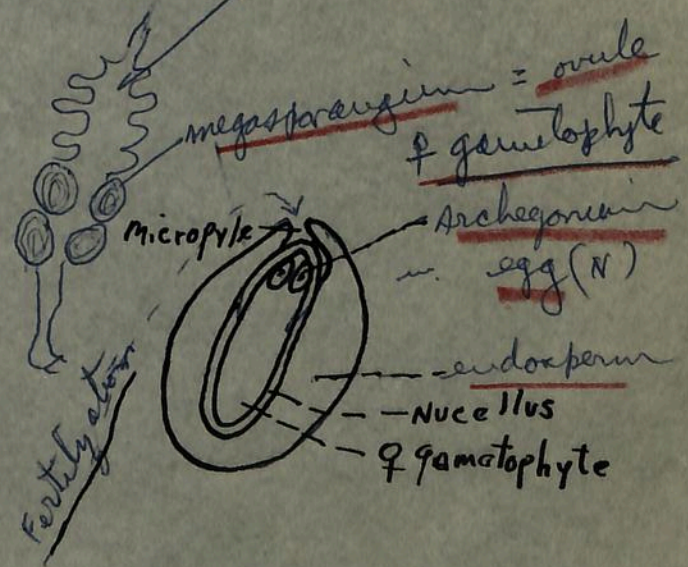 megasporangium = ovule
♀ gametophyte
Micropyle
Archegonium
egg (N)
endosperm
Nucellus
♀ gamatophyte
Fertilyation